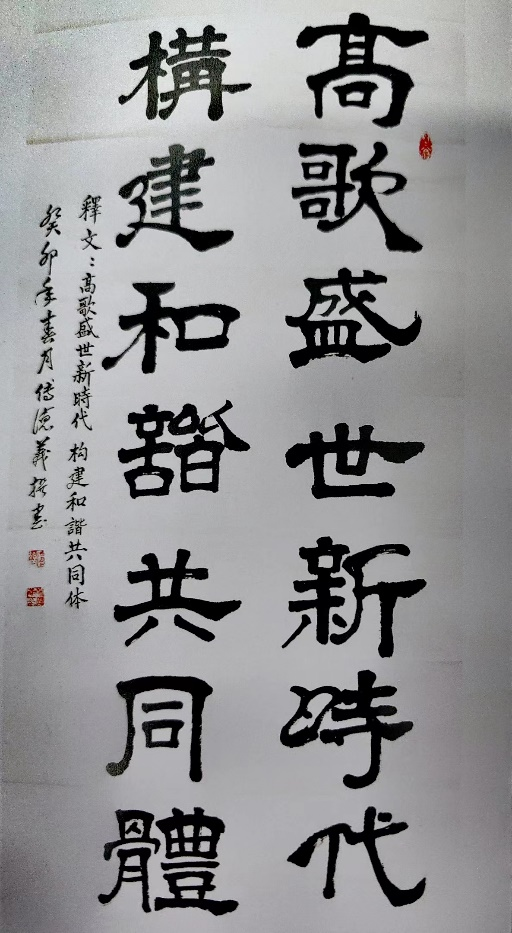 高歌盛世新時代
構建和諧共同體
釋文：高歌盛世新時代 构建和諧共同体
癸卯年春月傅德義撰書